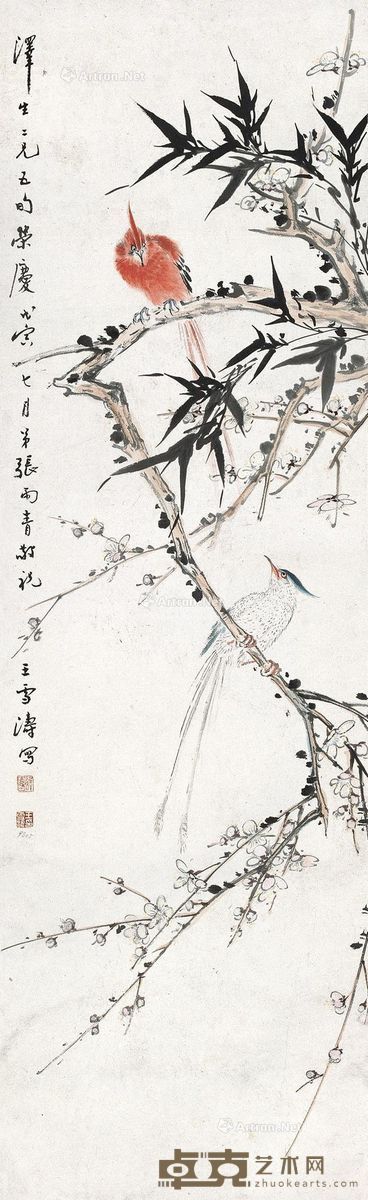 澤生二兄五旬榮慶戊寅七月弟張雨青敬祝
王雪濤寫
Artron.Net
Artron.Net
Artron.Net
卓克艺术网
zhuokearts.com